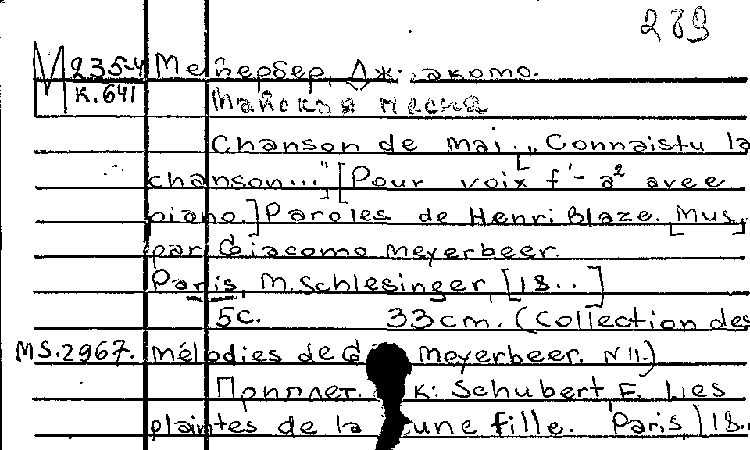 289
М 2354 Мейербер, Джакомо.
К.641 Майская песня
Chanson de mai. „Connaistu la
chanson...” [Pour voix f'- a² avec
piano.] Paroles de Henri Blaze. [Mus.
par Giacomo Meyerbeer.
Paris, M. Schlesinger, [18..]
5c. 33cm. (Collection des
MS.2967. mélodies de Meyerbeer. N 11.)
Приплет. к: Schubert, F. Les
plaintes de la jeune fille. Paris, 18..